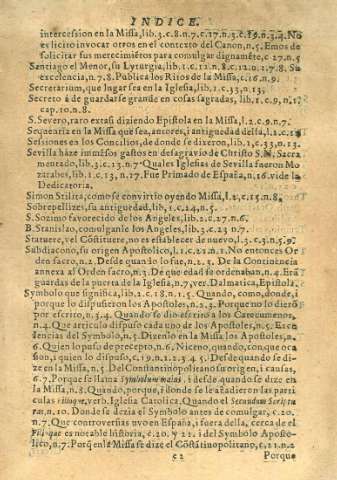 INDICE.
intercession en la Missa, lib.3.c.8.n.7.c.17.n.3.c.19.n.3.4. No
es licito invocar otros en el contexto del Canon, n.5. Emos de
solicitar sus merecimiētos para comulgar dignamēte, c 27.n 5
Santiago el Menor, su Lyturgia, lib.1.c.12.n.8.c.12.n.7.8. Su
excelencia, n.7.8. Publica los Ritos de la Missa, c.16.n 9.
Secretarium, que lugar sea en la Iglesia, lib.1.c.13,n 13,
Secreto á de guardarse grande en cosas sagradas, lib.1.c.9,n.
cap.10.n.8.
S. Severo, raro extasi diziendo Epistola en la Missa, l.2.c.9.n.7.
Sequencia en la Missa que sea, autores, i antiguedad della, l.2.c.
Sessiones en los Concilios, de donde se dixeron, lib.1.c.13,n.13.
Sevilla haze inmēsos gastos en desagravio de Christo S.N. Sacra
mentado, lib.3.c.13.n.7. Quales Iglesias de Sevilla fueron Mo
zarabes, lib.1.c.13, n.17. Fue Primado de España, n.16. vide la
Dedicatoria.
Simon Stilita, como se convirtio oyendo Missa, l.1.c.15.n.8.
Sobrepellizes, su antiguedad, lib.1.c.24,n.5.
S. Sozimo favorecido de los Angeles, lib.2.c.27.n.6.
B. Stanislao, comulganle los Angeles, lib.3.c.23 n.7.
Statuere, vel Cōstituere, no es establecer de nuevo, l.3.c.3.n.5.9.
Subdiacono, su origen Apostolico, l.1.c.21.n.1. No entonces Or
den sacro, n.2. Desde quando lo fue, n.2.5. De la Continencia
annexa al Orden sacro, n.3. De que edad se ordenaban, n.4. Era
guardas de la puerta de la Iglesia, n.7, ver. Dalmatica, Epistola.
Symbolo que significa, lib.2.c.18.n.1.5. Quando, como, donde, i
por que lo dispusieron los Apostoles, n.2.5. Porque no lo dierō
por escrito, n.3.4. Quando se dio escrito a los Catecumenos,
n.4. Que articulo dispuso cada uno de los Apostoles, n.5. Exce
lencias del Symbolo, n.5. Dizenlo en la Missa los Apostoles, n.
6. Quien lo puso de precepto, n.6. Niceno, quando, con que oca
sion, i quien lo dispuso, c.19.n.1.2.3.4.5. Desde quando se di-
ze en la Missa, n.5. Del Constantinopolitano su origen, i causas,
6.7. Porque se llama Symbolum maius, i desde quando se dize en
la Missa, n.8. Quando, porque, i donde se le añadieron las parti
culas Filioque, verb. Iglesia Catolica. Quando el Secundum Scriptu
ras, n.10. Donde se dezia el Symbolo antes de comulgar, c.20.
n.7. Que controversias uvo en España, i fuera della, cerca de el
Filioque es notable historia, c.20. y 22. i del Symbolo Aposto-
lico, n.7. Porq̄ en la Missa se dize el Cōstātinopolitano, c.21.n.2
Porque